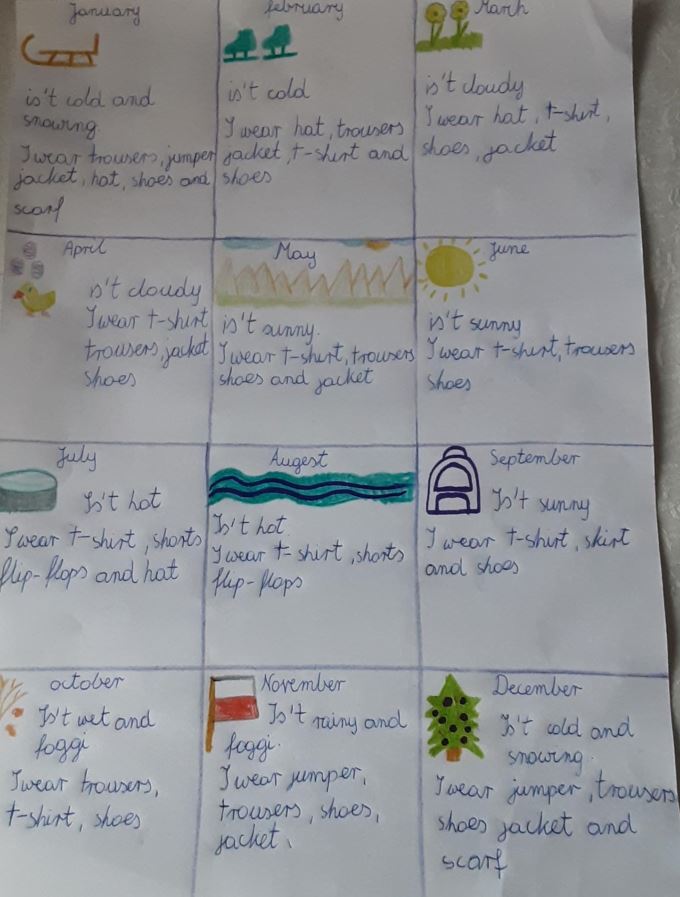 January
is't cold and
snowing.
I wear trousers, jumper
jacket, hat, shoes and
scarf
february
is't cold
I wear hat, trousers
jacket, t-shirt and
shoes
March
is't cloudy
I wear hat, t-shirt,
shoes, jacket
April
is't cloudy
I wear t-shirt
trousers, jackat
shoes
May
is't sunny.
I wear t-shirt, trousers
shoes and jacket
June
is't sunny
I wear t-shirt, trousers
shoes
July
Is't hot
I wear t-shirt, shorts
flip-flops and hat
Augest
Is't hot
I wear t-shirt, shorts
flip-flops
September
Is't sunny
I wear t-shirt, skirt
and shoes
october
Is't wet and
foggi
I wear trousers,
t-shirt, shoes
November
Is't rainy and
foggi.
I wear jumper,
trousers, shoes,
jacket,
December
Is't cold and
snowing.
I wear jumper, trousers
shoes jacket and
scarf